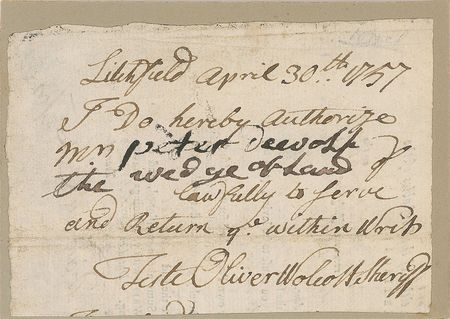 Litchfield April 30.th 1757
I Do hereby Authorize
Mr peter dewolf
the wedge of Land
lawfully to serve
and Return ye within Writ
Teste Oliver Wolcott Sheriff